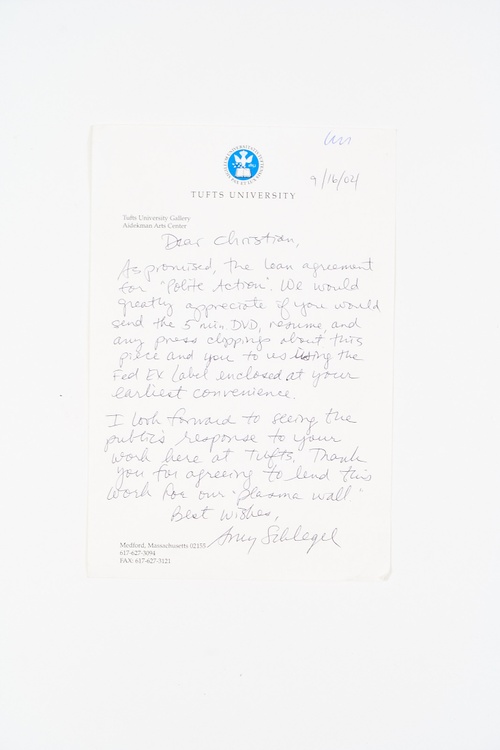 9/16/04
TUFTS UNIVERSITY
Tufts University Gallery
Aidekman Arts Center
Dear Christian,
As promised, the loan agreement
for "Polite Action". We would
greatly appreciate if you would
send the 5 min. DVD, resume, and
any press clippings about this
piece and you to us using the
Fed Ex Label enclosed at your
earliest convenience.
I look forward to seeing the
public's response to your
work here at Tufts. Thank
you for agreeing to lend this
work for our "plasma wall"
Best wishes,
Amy Schlegel
Medford, Massachusetts 02155
617-627-3094
FAX: 617-627-3121